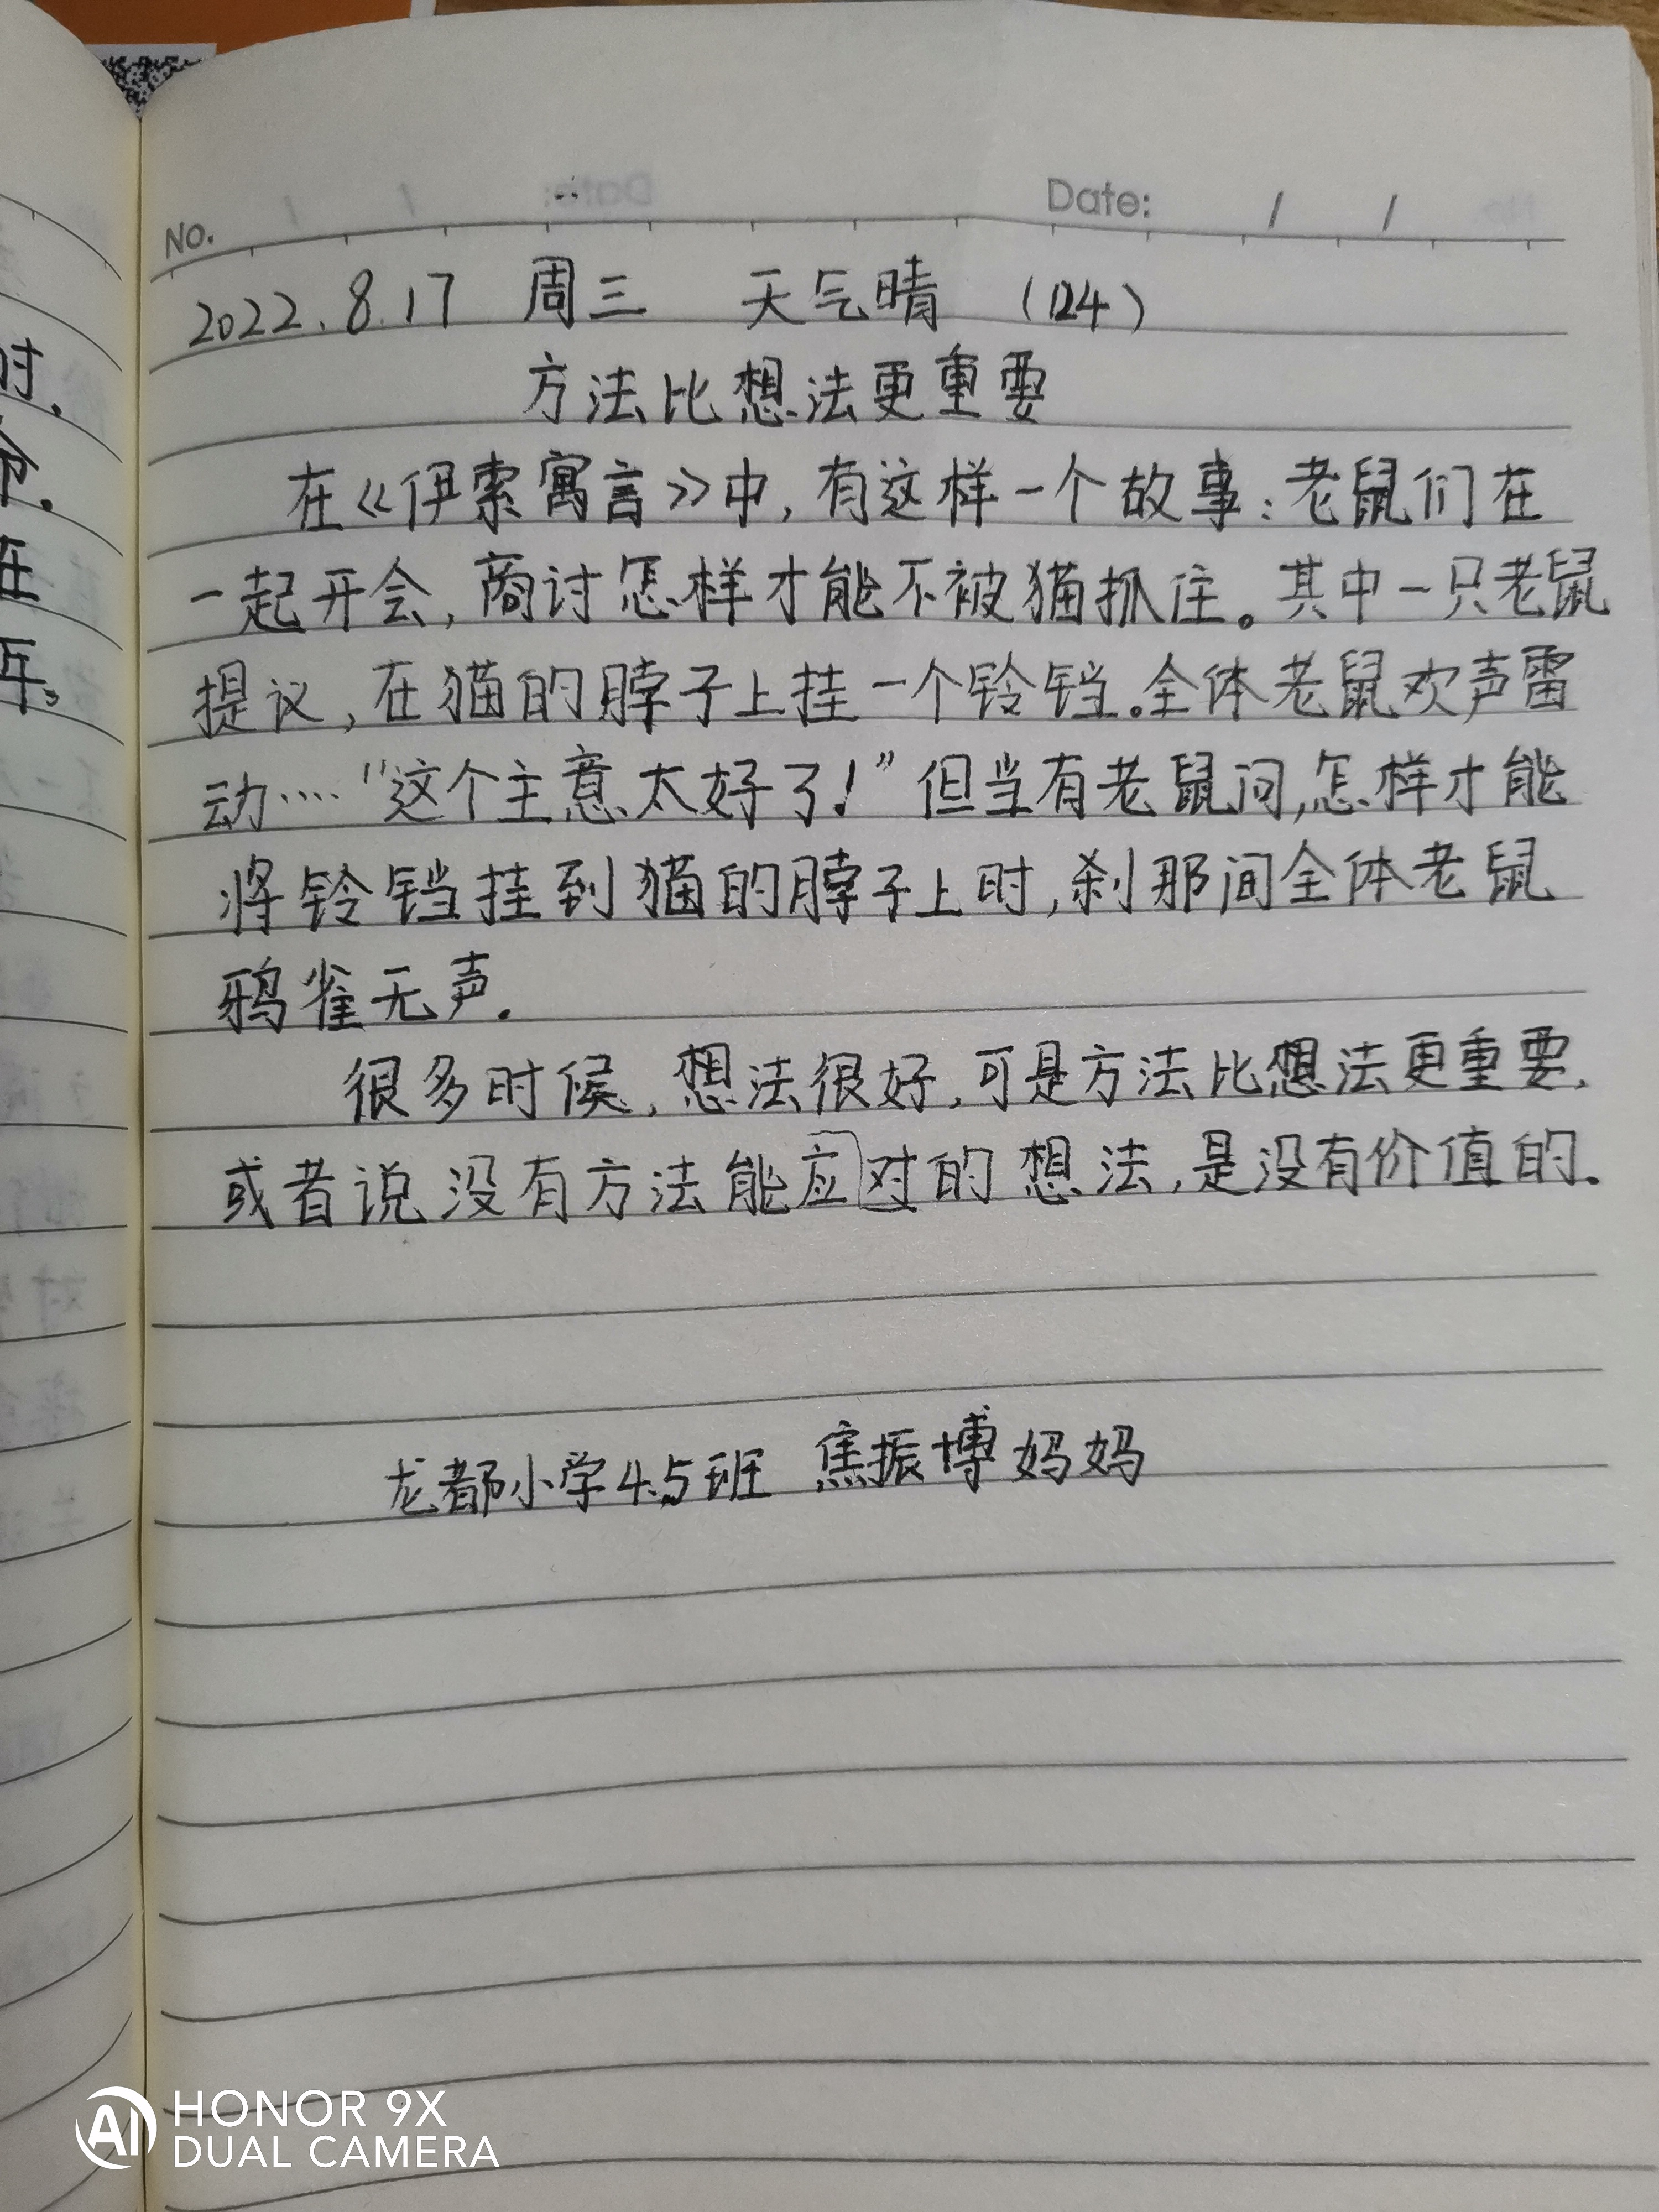 时.
在
No.
Date: / /
2022.8.17 周三 天气晴 (124)
方法比想法更重要
在《伊索寓言》中,有这样一个故事:老鼠们在
一起开会,商讨怎样才能不被猫抓住。其中一只老鼠
提议,在猫的脖子上挂一个铃铛。全体老鼠欢声雷
动····“这个主意太好了!”但当有老鼠问,怎样才能
将铃铛挂到猫的脖子上时,刹那间全体老鼠
鸦雀无声.
很多时候,想法很好,可是方法比想法更重要,
或者说没有方法能应对的想法,是没有价值的.
龙都小学4.5班 焦振博妈妈
AI HONOR 9X
DUAL CAMERA